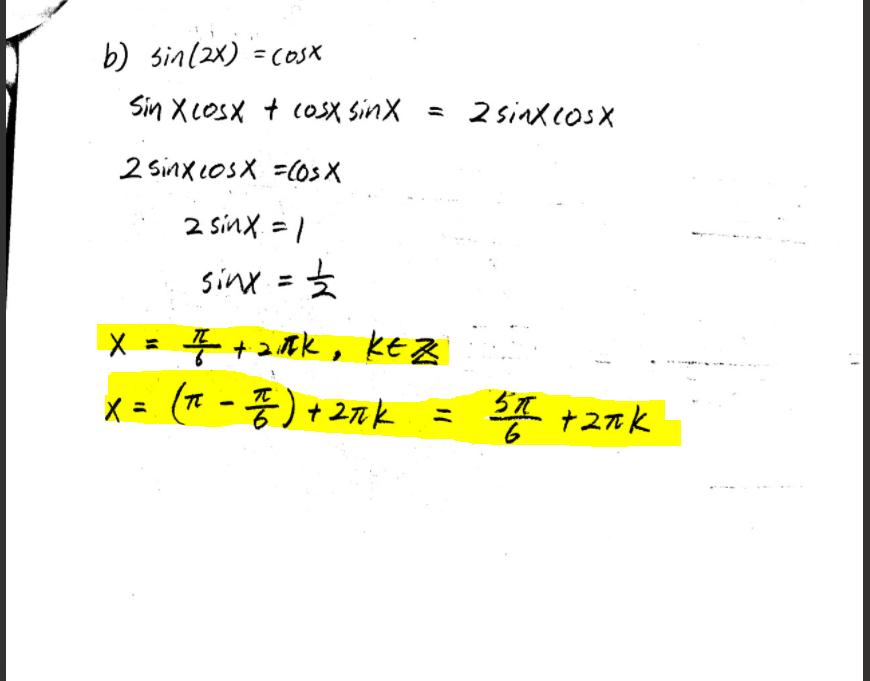 b) sin(2x) = cosx
sin x cosx + cosx sinx = 2 sinx cosx
2 sinx cosx = cosx
2 sinx = 1
sinx = 1/2
x = π/6 + 2πk, k∈ℤ
x = (π - π/6) + 2πk = 5π/6 + 2πk